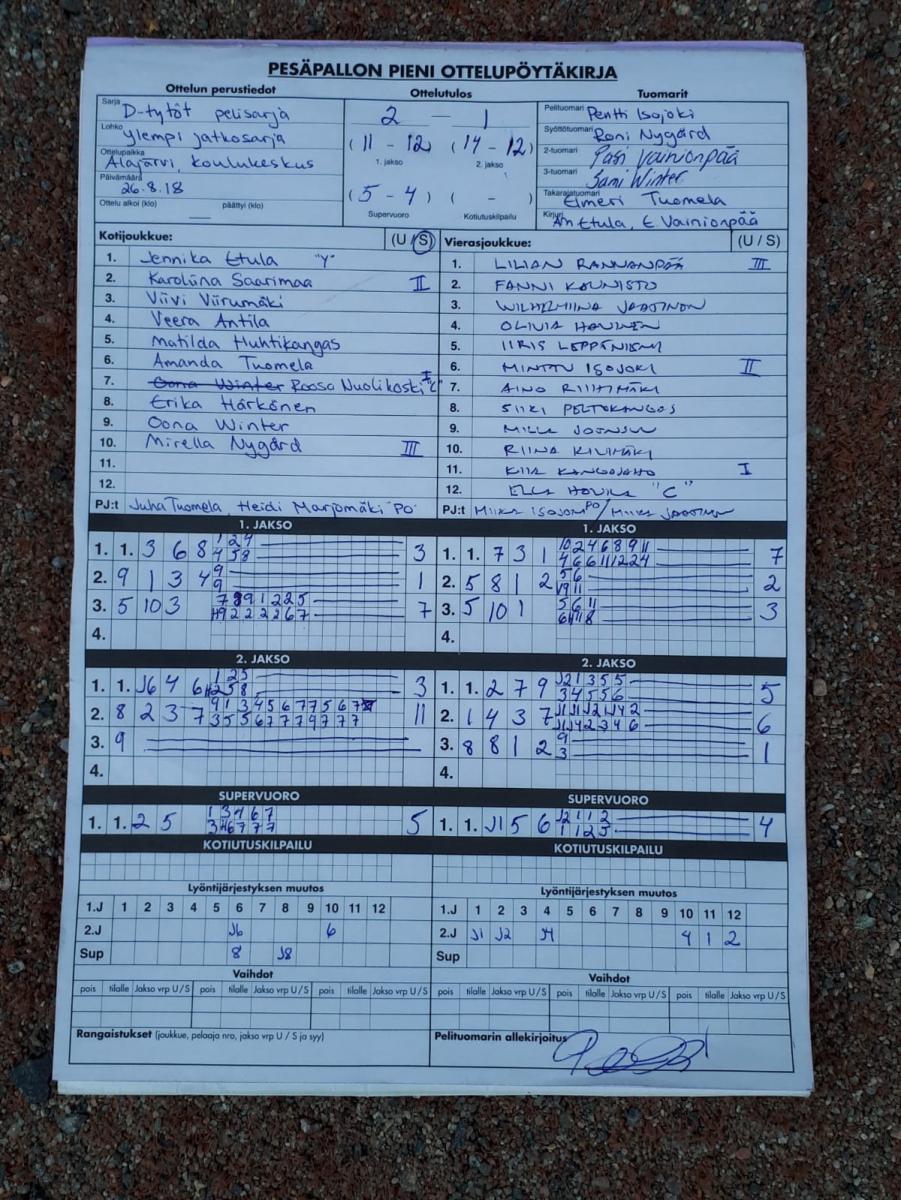 PESÄPALLON PIENI OTTELUPÖYTÄKIRJA
Ottelun perustiedot
Sarja D-tytöt pelisarja
Lohko Ylempi jatkosarja
Ottelupaikka Alajärvi, koulukeskus
Päivämäärä 26.8.18
Ottelu alkoi (klo) päättyi (klo)
Ottelutulos
2 — 1
(11 - 12) (14 - 12)
1. jakso 2. jakso
(5 - 4) ( - )
Supervuoro Kotiutuskilpailu
Tuomarit
Pelituomari Pentti Isojoki
Syöttötuomari Roni Nygård
2-tuomari Pasi Vainionpää
3-tuomari Sami Winter
Takarajatuomari Elmeri Tuomela
Kirjuri Etula, E. Vainionpää
Kotijoukkue: (U / S)
1. Jennika Etula "Y"
2. Karoliina Saarimaa II
3. Viivi Viirumäki
4. Veera Antila
5. Matilda Huhtikangas
6. Amanda Tuomela
7. Oona Winter Roosa Nuolikoski I "C"
8. Erika Härkönen
9. Oona Winter
10. Mirella Nygård III
11.
12.
PJ:t Juha Tuomela, Heidi Marjomäki "PO"
Vierasjoukkue: (U / S)
1. LILIAN RANNANPÄÄ III
2. FANNI KAUNISTO
3. WILHELMIINA JAATINEN
4. OLIVIA
5. IIRIS LEPPÄNIEMI
6. MINTTU ISOJOKI II
7. AINO RIIHIMÄKI
8. SIIRI PELTOKANGAS
9. MILLA JOENSUU
10. RIINA KIVIMÄKI
11. KIIA KANGASAHO I
12. ELLA "C"
PJ:t MIIKA PO / MIIKA JAATINEN
1. JAKSO
1. 1. 3 6 8 3
2. 9 1 3 4 1
3. 5 10 3 7
4.
1. JAKSO
1. 1. 7 3 1 7
2. 5 8 1 2 2
3. 5 10 1 3
4.
2. JAKSO
1. 1. J6 4 6 3
2. 8 2 3 7 11
3. 9
4.
2. JAKSO
1. 1. 2 7 9 5
2. 1 4 3 7 6
3. 8 8 1 2 1
4.
SUPERVUORO
1. 1. 2 5 5
SUPERVUORO
1. 1. J1 5 6 4
KOTIUTUSKILPAILU
KOTIUTUSKILPAILU
Lyöntijärjestyksen muutos
1.J 1 2 3 4 5 6 7 8 9 10 11 12
2.J J6 6
Sup 8 J8
Lyöntijärjestyksen muutos
1.J 1 2 3 4 5 6 7 8 9 10 11 12
2.J J1 J2 J4 4 1 2
Sup
Vaihdot
pois tilalle Jakso vrp U / S pois tilalle Jakso vrp U / S pois tilalle Jakso vrp U / S
Vaihdot
pois tilalle Jakso vrp U / S pois tilalle Jakso vrp U / S pois tilalle Jakso vrp U / S
Rangaistukset (joukkue, pelaaja nro, jakso vrp U / S ja syy)
Pelituomarin allekirjoitus